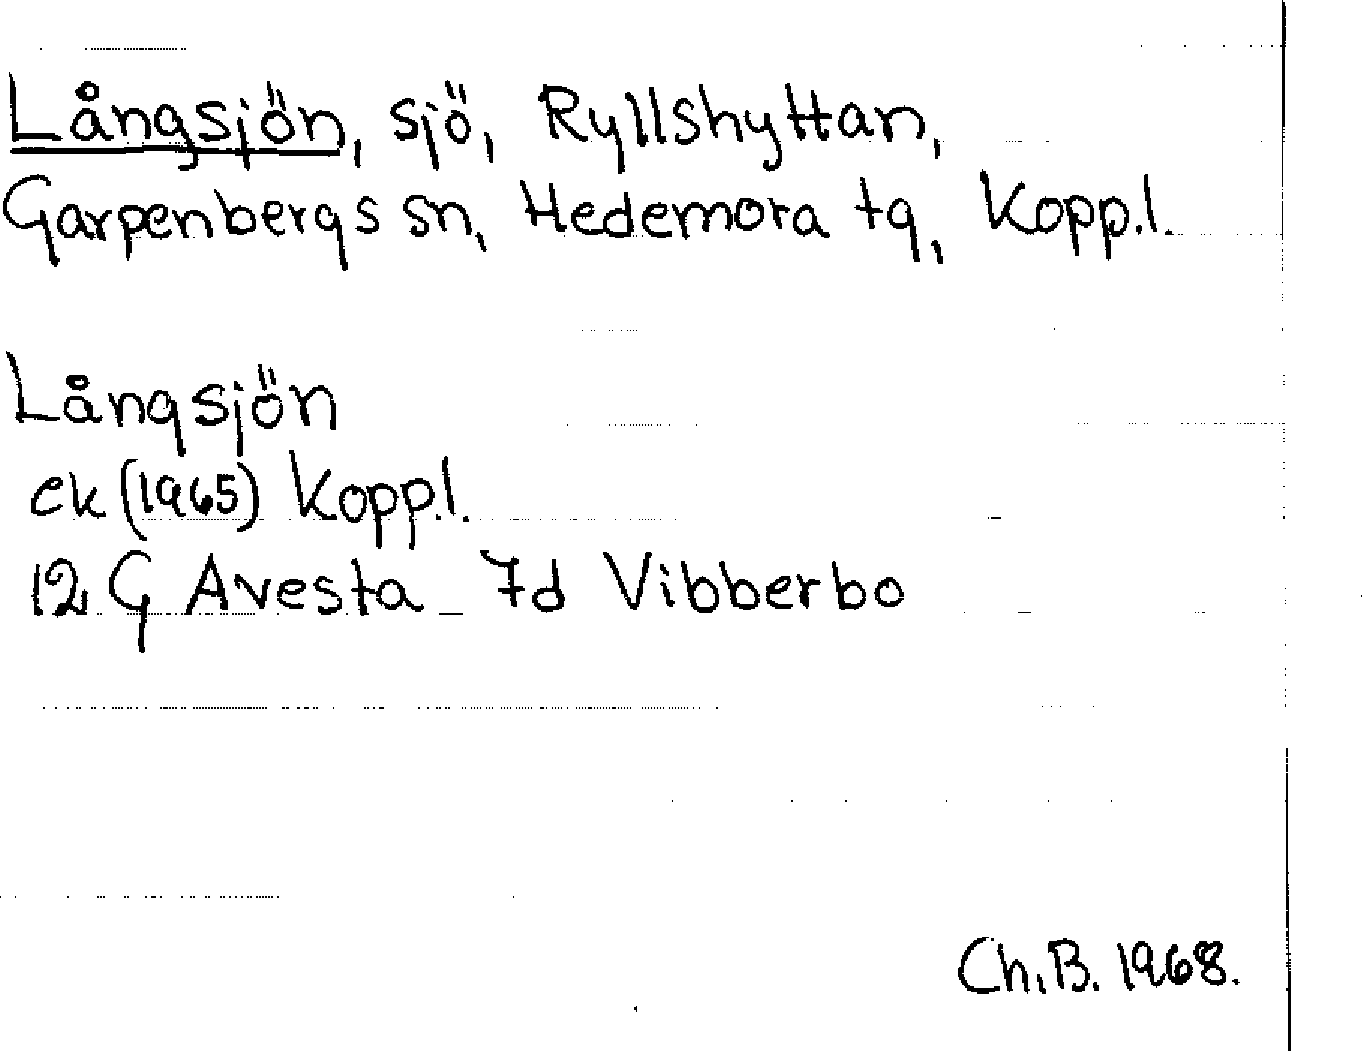 Långsjön, sjö, Ryllshyttan,
Garpenbergs sn, Hedemora tg, Kopp.l.
Långsjön
ek (1965) Kopp.l.
12 G Avesta 7d Vibberbo
Ch.B. 1968.